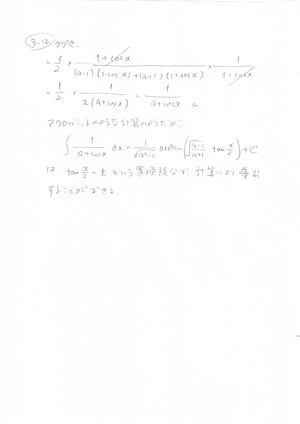 3.12 つづき.
= 1/2 · (1+cosx)/((a-1)(1-cosx)+(a+1)(1+cosx)) · 1/(1+cosx)
= 1/2 · 1/(2(a+cosx)) = 1/(a+cosx) 。
アクロバットのような計算のようだが,
∫ 1/(a+cosx) dx = 1/√(a²-1) arctan(√((a-1)/(a+1)) tan x/2) + C
は tan x/2 = t という置換積分で, 計算により 導出
することができる.